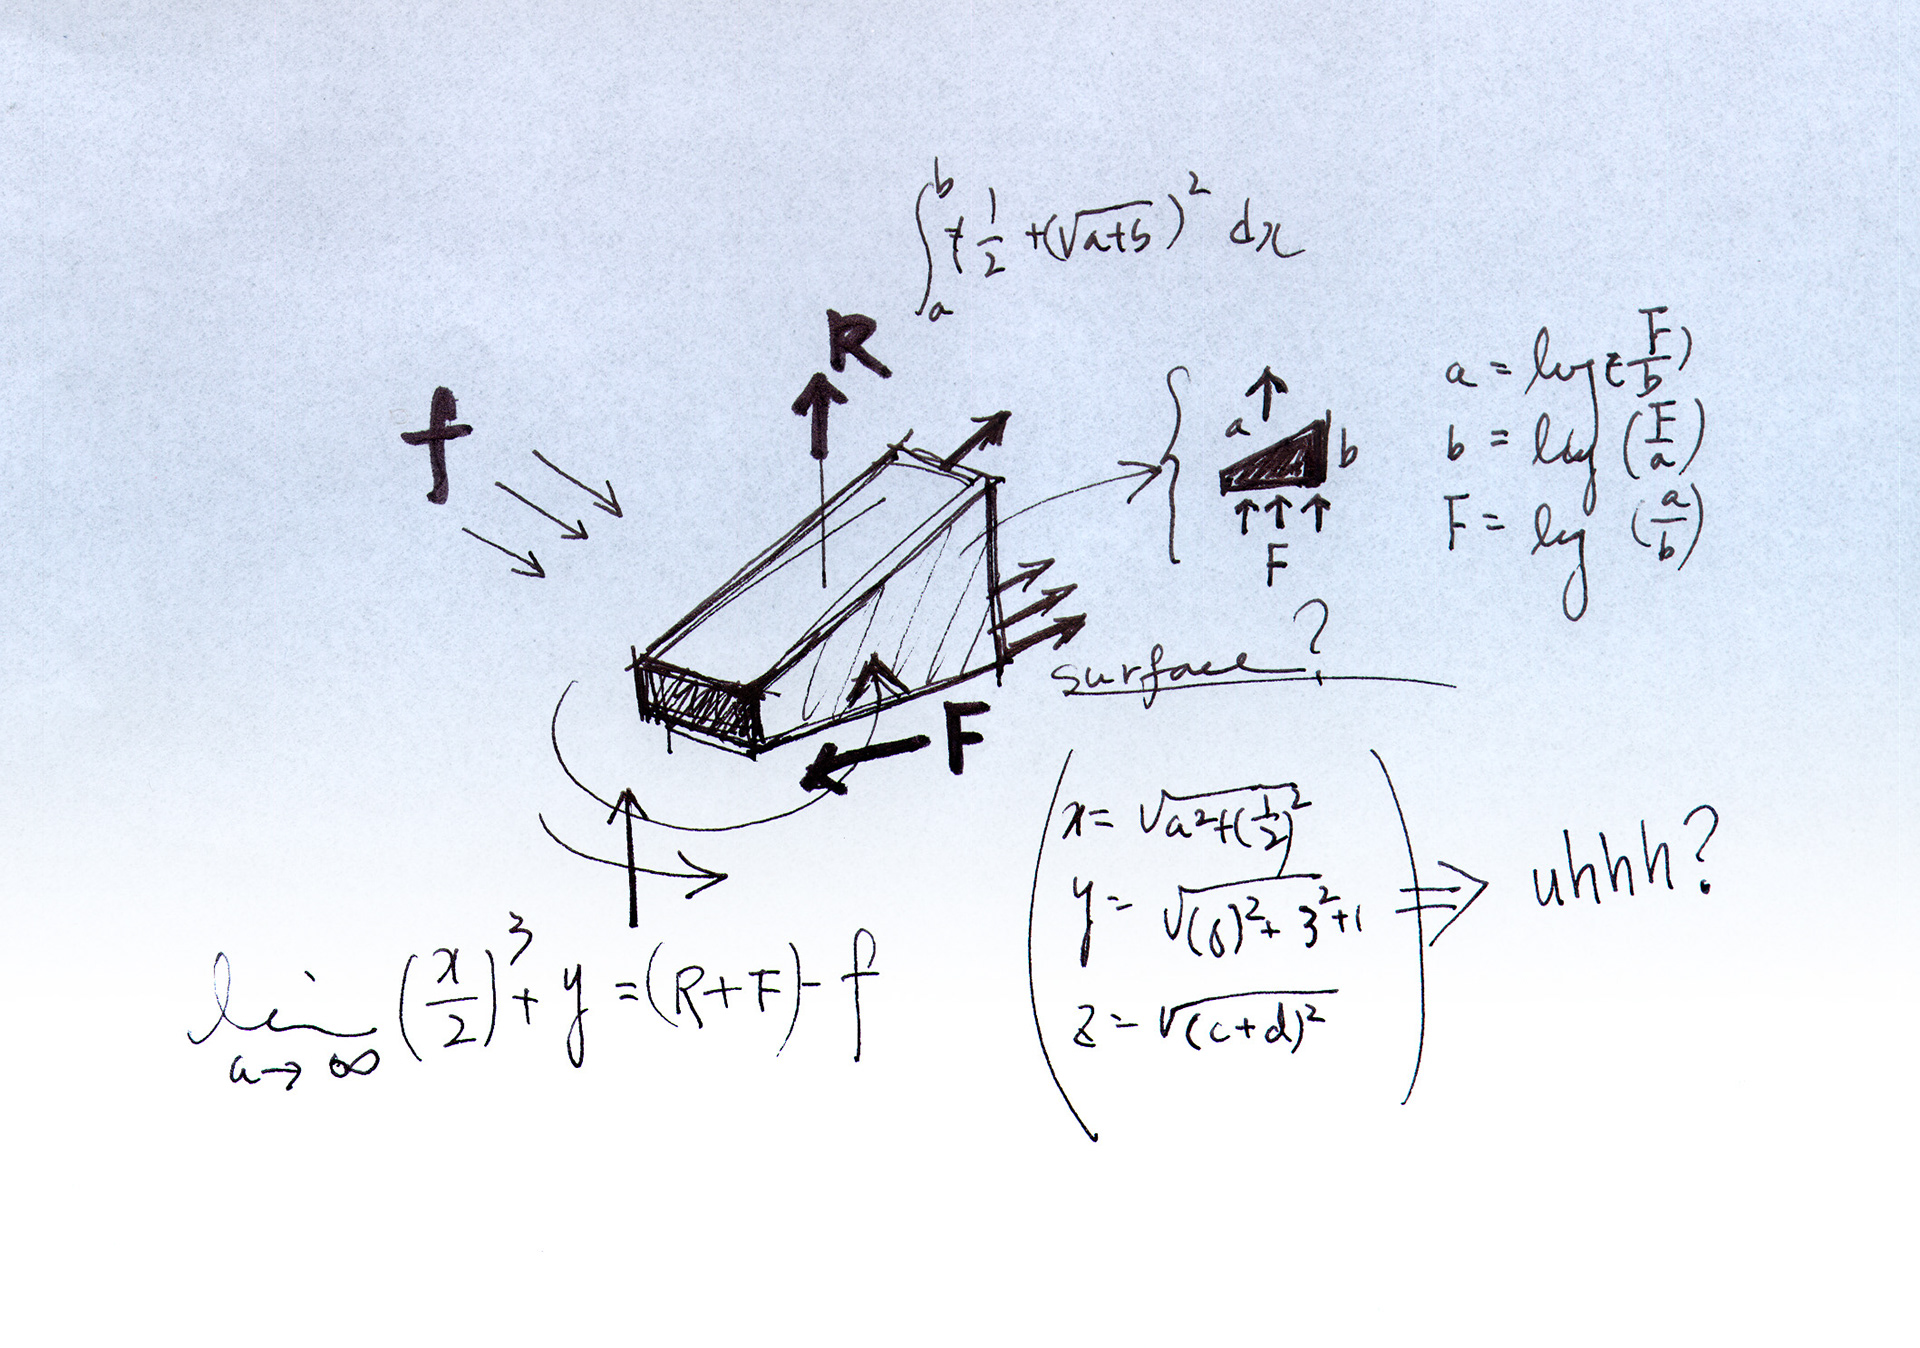 ∫_a^b z 1/2 + (√a+b)² dx
R
f
a = log (F/b)
b = log (F/a)
F = log (a/b)
a
b
F
surface?
F
x = √a²+(1/2)²
y = √(6)²+3²+1
z = √(c+d)²
⇒ uhhh?
lim a→∞ (x/2)³ + y = (R+F) - f